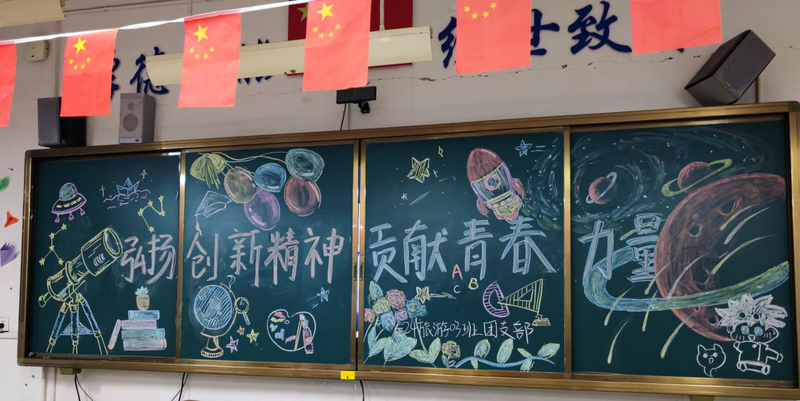 德 世致
弘扬创新精神 贡献青春力量
A
B
C
旅游03班团支部